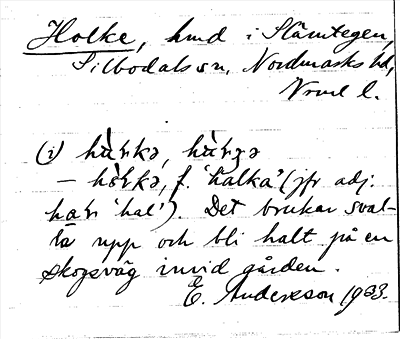 Holke, hmd i Slämtegen,
Silbodals sn, Nordmarks hd,
Vrml l.
(i)
— f. 'halka' (jfr adj.
'hal'). Det brukar sval-
la upp och bli halt på en
skogsväg invid gården.
E. Andersson 1933.